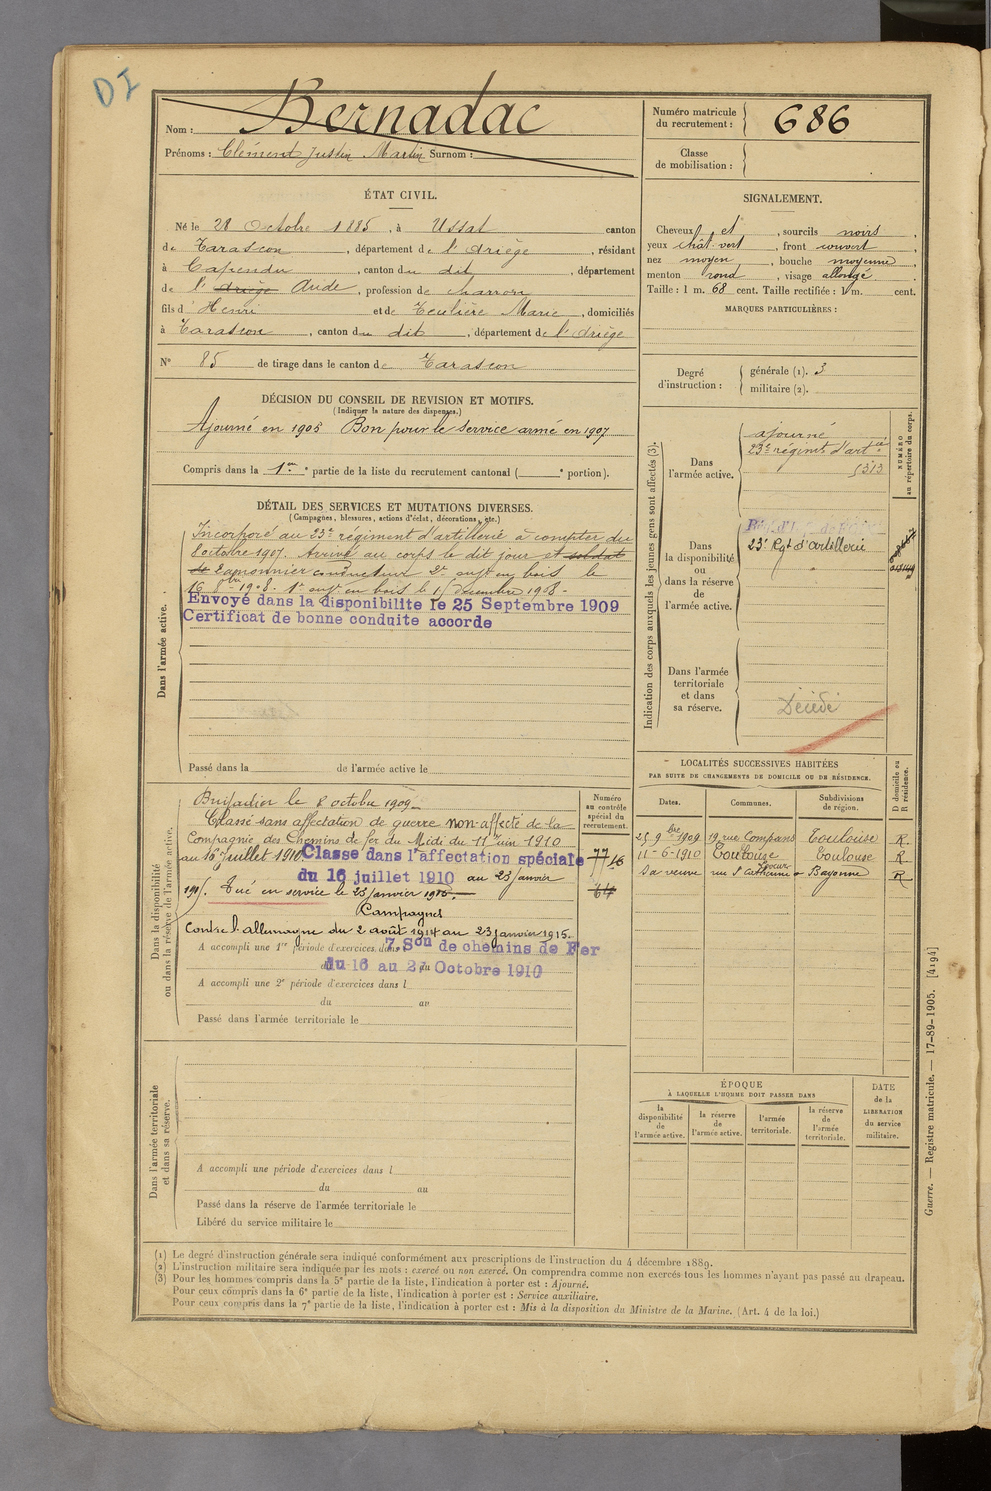 DI
Nom : Bernadac
Prénoms : Clément Justin Martin Surnom :
Numéro matricule du recrutement : 686
Classe de mobilisation :
ÉTAT CIVIL.
Né le 28 Octobre 1885, à Ussat canton
de Tarascon, département de l'Ariège, résidant
à Capendu, canton du dit, département
de l' Ariège Aude, profession de charron
fils d' Henri et de Teulière Marie, domiciliés
à Tarascon, canton du dit, département de l'Ariège
N° 85 de tirage dans le canton de Tarascon
SIGNALEMENT.
Cheveux et, sourcils noirs,
yeux chât-vert, front couvert,
nez moyen, bouche moyenne,
menton rond, visage allongé
Taille : 1 m. 68 cent. Taille rectifiée : 1 m. cent.
MARQUES PARTICULIÈRES :
Degré d'instruction : générale (1). 3
militaire (2).
DÉCISION DU CONSEIL DE REVISION ET MOTIFS.
(Indiquer la nature des dispenses.)
Ajourné en 1906 Bon pour le service armé en 1907
Compris dans la 1re partie de la liste du recrutement cantonal ( e portion).
DÉTAIL DES SERVICES ET MUTATIONS DIVERSES.
(Campagnes, blessures, actions d'éclat, décorations, etc.)
Dans l'armée active.
Incorporé au 23e régiment d'artillerie à compter du
8 octobre 1907. Arrivé au corps le dit jour et soldat
de canonnier conducteur 2e en bois le
16 8bre 1908. 1er en bois le 15 décembre 1908.
Envoyé dans la disponibilite le 25 Septembre 1909
Certificat de bonne conduite accorde
Passé dans la de l'armée active le
Indication des corps auxquels les jeunes gens sont affectés (3).
NUMÉRO au répertoire du corps.
Dans l'armée active.
ajourné
23e régimt d'artie
5313
Dans la disponibilité ou dans la réserve de l'armée active.
23e Rgt d'artillerie
Dans l'armée territoriale et dans sa réserve.
Décédé
LOCALITÉS SUCCESSIVES HABITÉES
PAR SUITE DE CHANGEMENTS DE DOMICILE OU DE RÉSIDENCE.
D domicile ou R résidence.
Dates. Communes. Subdivisions de région.
25 9bre 1909 19 rue Compans Toulouse R
11-6-1910 Toulouse Toulouse R
Sa veuve rue Ste Catherine Bayonne R
Dans la disponibilité ou dans la réserve de l'armée active.
Numéro au contrôle spécial du recrutement.
Brigadier le 8 octobre 1909
Classé sans affectation de guerre non-affecté de la
Compagnie des Chemins de fer du Midi du 11 juin 1910
au 16 juillet 1910 Classe dans l'affectation spéciale
77 16
du 16 juillet 1910 au 23 janvier
64
1915. Tué en service le 23 janvier 1915.
Campagnes
Contre l'allemagne du 2 août 1914 au 23 janvier 1915.
A accompli une 1re période d'exercices dans 7 Son de chemins de Fer
du 16 au 27 Octobre 1910
A accompli une 2e période d'exercices dans l
du au
Passé dans l'armée territoriale le
ÉPOQUE
À LAQUELLE L'HOMME DOIT PASSER DANS
la disponibilité de l'armée active.
la réserve de l'armée active.
l'armée territoriale.
la réserve de l'armée territoriale.
DATE de la LIBÉRATION du service militaire.
Dans l'armée territoriale et dans sa réserve.
A accompli une période d'exercices dans l
du au
Passé dans la réserve de l'armée territoriale le
Libéré du service militaire le
(1) Le degré d'instruction générale sera indiqué conformément aux prescriptions de l'instruction du 4 décembre 1889.
(2) L'instruction militaire sera indiquée par les mots : exercé ou non exercé. On comprendra comme non exercés tous les hommes n'ayant pas passé au drapeau.
(3) Pour les hommes compris dans la 5e partie de la liste, l'indication à porter est : Ajourné.
Pour ceux compris dans la 6e partie de la liste, l'indication à porter est : Service auxiliaire.
Pour ceux compris dans la 7e partie de la liste, l'indication à porter est : Mis à la disposition du Ministre de la Marine. (Art. 4 de la loi.)
Guerre. — Registre matricule. — 17-89-1905. [4194]